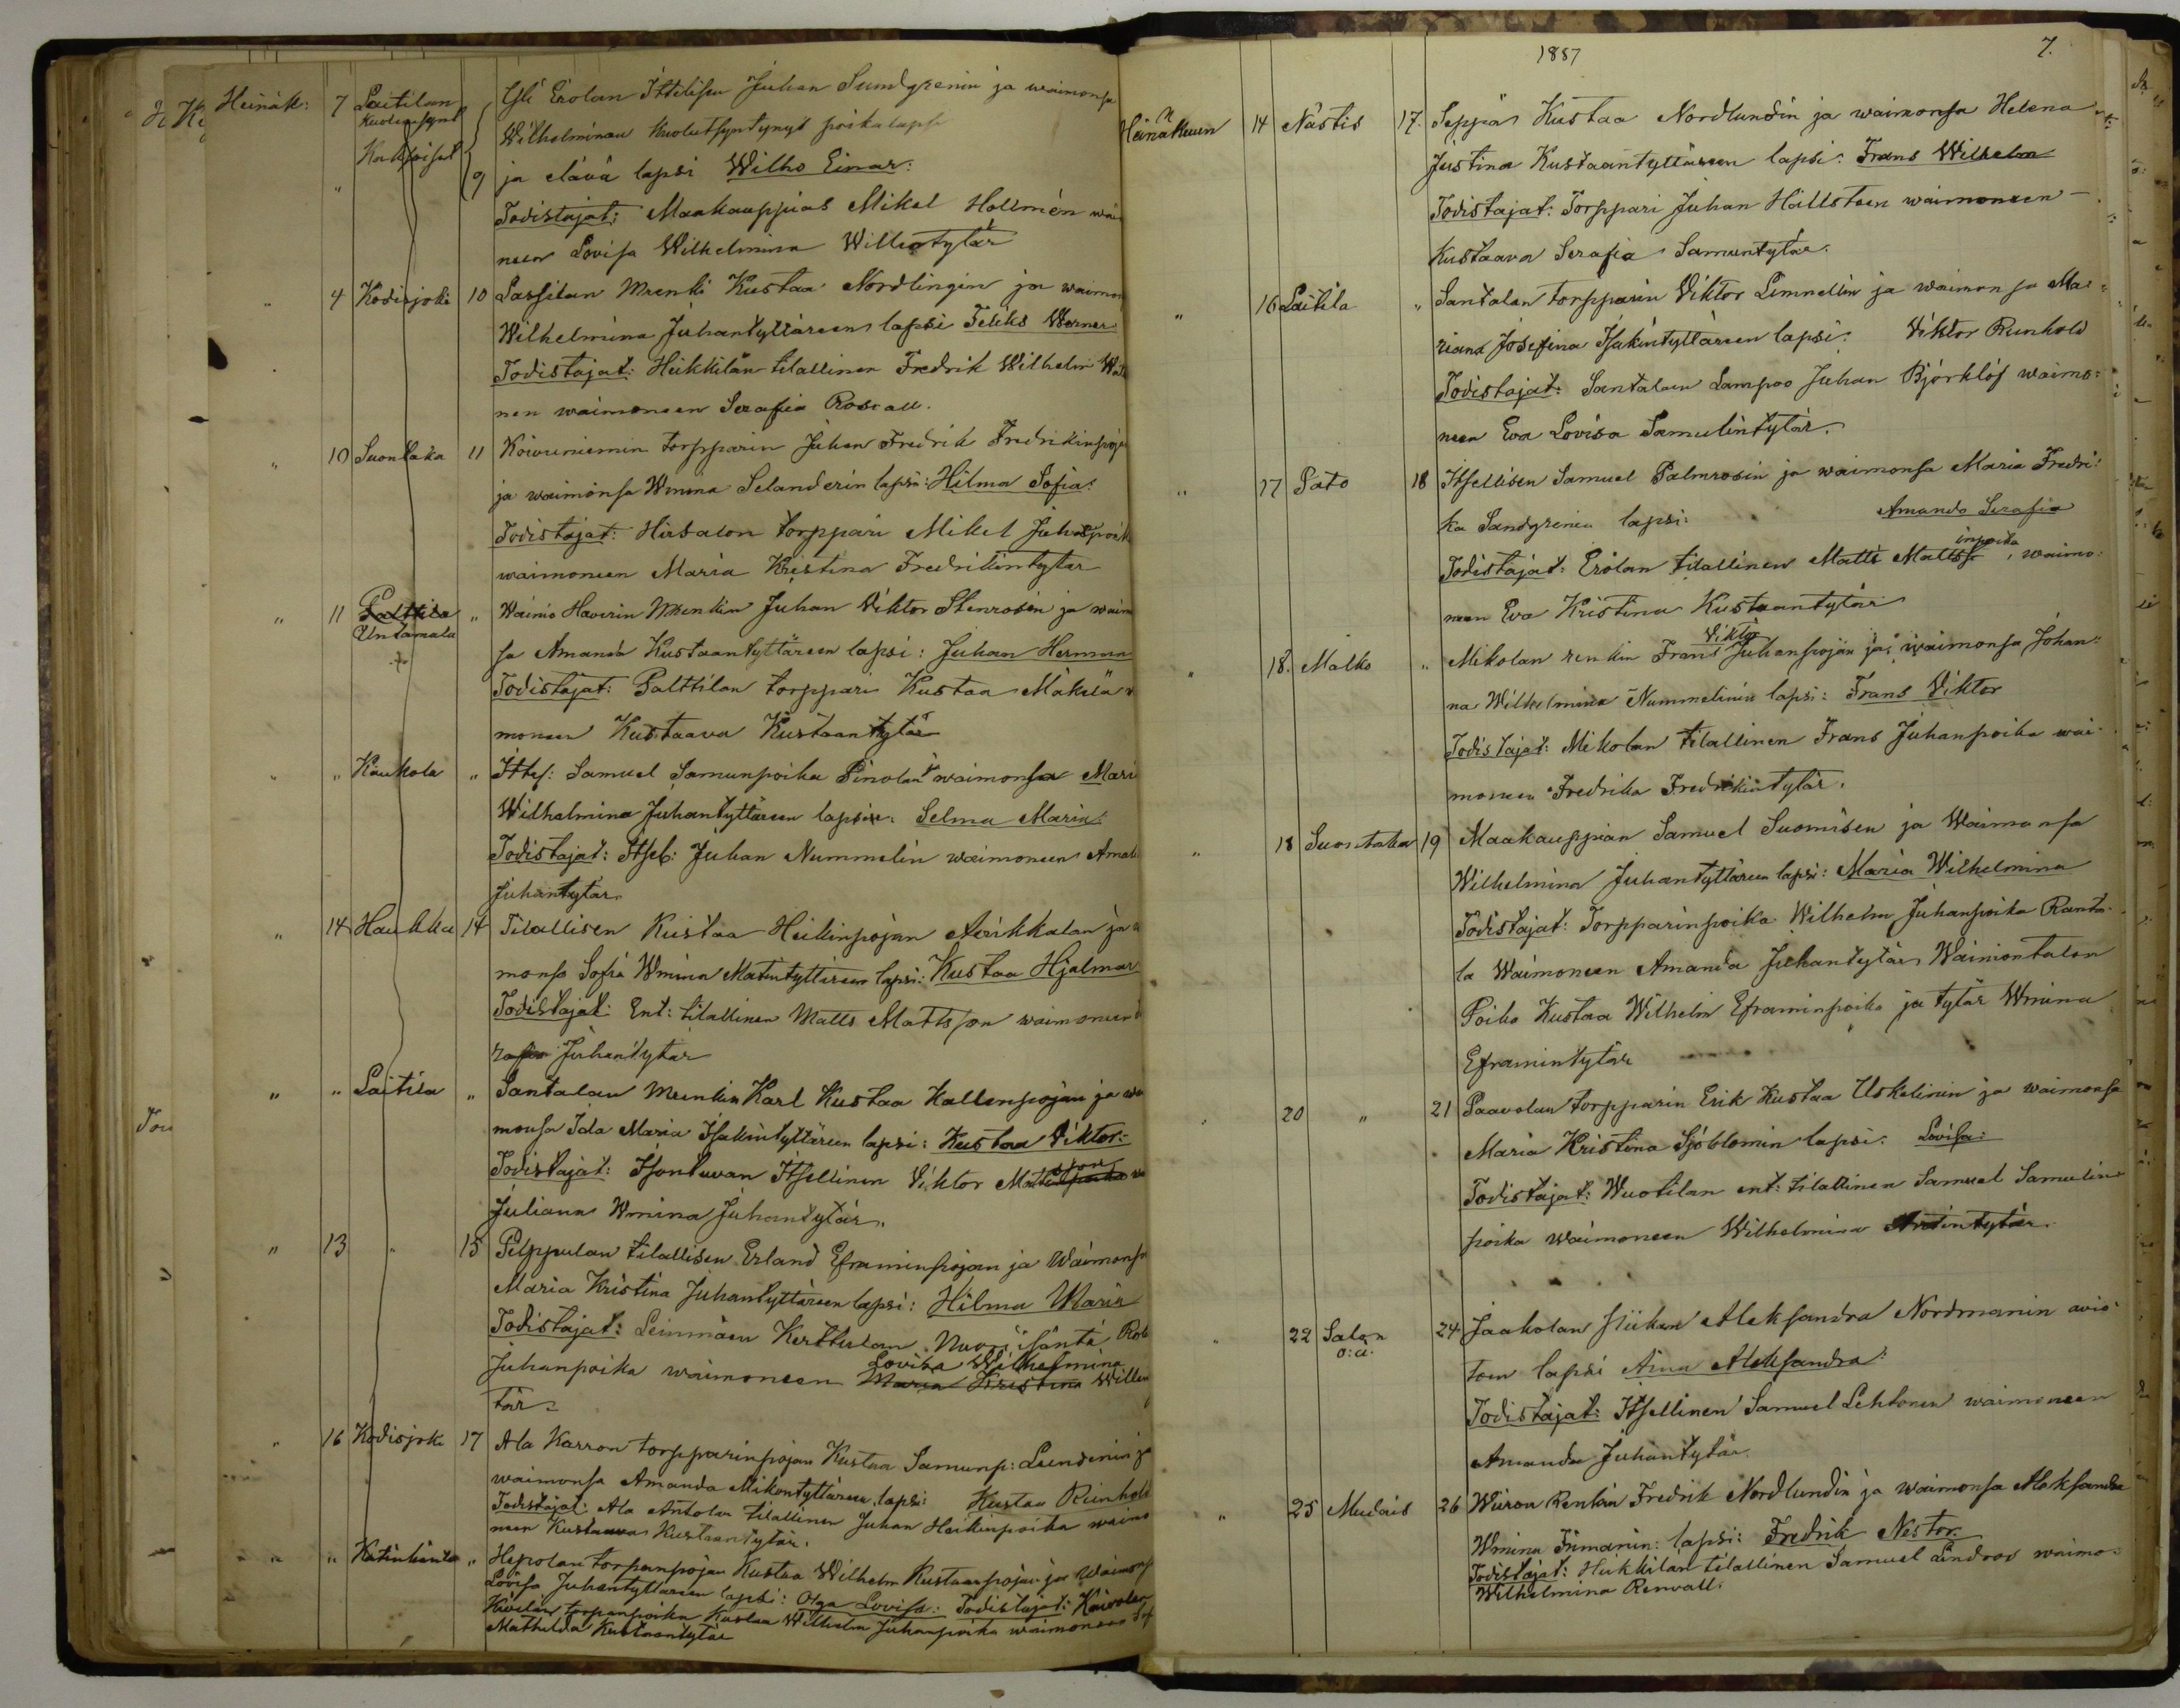 Heinäk: 7 Laitilan Yli Erolan Ittelisen Juhan Sundgrenin ja waimonsa
Kuolt.synt
Wilhelminan kuolutsyntynyt poikalapsi
Kaksoiset
" 9 ja elävä lapsi Wilho Einar:
Todistajat: Maakauppias Mikel Hollmén
neen Lovisa Wilhelmina Willentytär
" 4 Kodisjoki 10 Lassilan Mrenki Kustaa Nordlingin ja waimon
Wilhelmina Juhantyttäreen lapsi Feliks Werner
Todistajat: Heikkilän tilallinen Fredrik Wilhelm
nen waimoneen Serafia Rosvall.
" 10 Suontaka 11 Koivuniemin torpparin Juhan Fredrik Fredrikinpoja
ja waimonsa Wmina Selanderin lapsi: Hilma Sofia:
Todistajat: Hirsalon torppari Mikel Juhanpoik
waimoneen Maria Kristina Fredrikintytär
" 11 Palttila " Wainio Haverin Mrenkin Juhan Viktor Stenrosin ja waim
Untamala
sa Amanda Kustaantyttäreen lapsi: Juhan Herman
Todistajat: Palttilan torppari Kustaa Mäkelä
moneen Kustaava Kustaantytär
" " Kaukola " Ittel: Samuel Samunpoika Pinolan waimonsa Mari
Wilhelmina Juhantyttäreen lapsi: Selma Maria:
Todistajat: Itsel: Juhan Nummelin waimoneen Amal
Juhantytär
" 14 Haukka 14 Tilallisen Kustaa Heikinpojan Aerikkalan ja
monsa Sofia Wmina Matintyttäreen lapsi: Kustaa Hjalmar
Todistajat: Ent: tilallinen Matts Mattsson waimoneen
rafia Juhantytär
" " Laitila " Santalan Mrenkin Karl Kustaa Kallenpojan ja wa
monsa Ida Maria Isakintyttäreen lapsi: Kustaa Viktor:
Todistajat: Isontuvan Itsellinen Viktor
Juliana Wmina Juhantytär.
" 13 " 15 Pelppulan tilallisen Erland Eframinpojan ja Waimonsa
Maria Kristina Juhantyttäreen lapsi: Hilma Maria
Todistajat: Leinmäen Kerttulan Nuori isäntä Rob
Lovisa Wilhelmina
Juhanpoika waimoneen Maria Kristina Willen
tär.
" 16 Kodisjoki 17 Ala Karron torpparinpojan Kustaa Samunp: Lundenin ja
waimonsa Amanda Mikontyttäreen lapsi: Kustaa Reinhold
Todistajat: Ala Antolan tilallinen Juhan Heikinpoika waimo
neen Kustaava Kustaantytär.
" " Katinhänta " Hepolan torpanpojan Kustaa Wilhelm Kustaanpojan ja Waimons
Lovisa Juhantyttäreen lapsi: Olga Lovisa: Todistajat: Koivolan
torpanpoika Kustaa Wilhelm Juhanpoika waimoneen Sof
Mathilda Kustaantytär
1887 7.
Heinäkuun 14 Nästis 17. Seppä Kustaa Nordlundin ja waimonsa Helena
Justina Kustaantyttäreen lapsi: Frans Wilhelm
Todistajat: Torppari Juhan Hällsteen waimoneen
Kustaava Serafia Samuntytär.
" 16 Laitila " Santalan torpparin Viktor Limnellin ja waimonsa Ma=
riana Josefina Isakintyttäreen lapsi: Viktor Reinhold
Todistajat: Santalan Lampoo Juhan Björklöf waimo=
neen Eva Lovisa Samulintytär.
" 17 Pato 18 Itsellisen Samuel Palmrosin ja waimonsa Maria Fredri=
ka Sandgrenin lapsi: Amanda Serafia
inpoika
Todistajat: Erolan tilallinen Matti Matts, waimo=
neen Eva Kristina Kustaantytär
Viktor
" 18. Malko " Mikolan renkin Frans Juhanpojan ja waimonsa Johan=
na Wilhelmina Nummelinin lapsi: Frans Viktor
Todistajat: Mikolan tilallinen Frans Juhanpoika wai=
moneen Fredrika Fredrikintytär.
" 18 Suontaka 19 Maakauppian Samuel Suomisen ja Waimonsa
Wilhelmina Juhantyttäreen lapsi: Maria Wilhelmina
Todistajat: Torpparinpoika Wilhelm Juhanpoika Ranta
la Waimoneen Amanda Juhantytär, Wainiontalon
Poika Kustaa Wilhelm Eframinpoika ja tytär Wmina
Eframintytär
" 20 " 21 Paavolan torpparin Erik Kustaa Uskelinin ja waimonsa
Maria Kristina Sjöblomin lapsi: Lovisa:
Todistajat: Wuotilan ent: tilallinen Samuel Samulin
poika waimoneen Wilhelmina
" 22 Salon 24 Jaakolan piikan Aleksandra Nordmanin avio
o: ä:
toin lapsi Aina Aleksandra:
Todistajat: Itsellinen Samuel Lehtonen waimoneen
Amanda Juhantytär.
" 25 Mudais 26 Wiiron Renkin Fredrik Nordlundin ja waimonsa Aleksandra
Wmina Finmanin: lapsi: Fredrik Nestor.
Todistajat: Heikkilän tilallinen Samuel Lindroos waimo=
Wilhelmina Renvall.